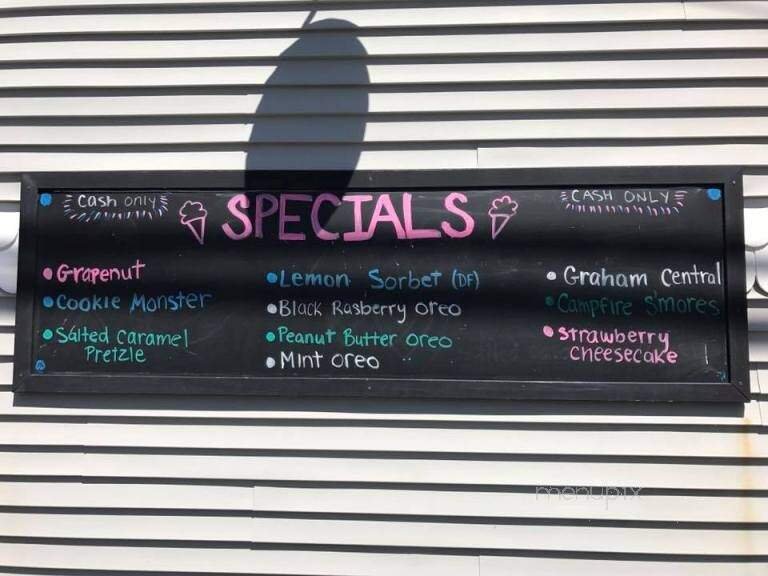 Cash only
SPECIALS
CASH ONLY
• Grapenut
• Cookie Monster
• Salted Caramel
Pretzle
• Lemon Sorbet (DF)
• Black Rasberry Oreo
• Peanut Butter Oreo
• Mint Oreo
• Graham Central
• Campfire S'mores
• Strawberry
Cheesecake
menupix